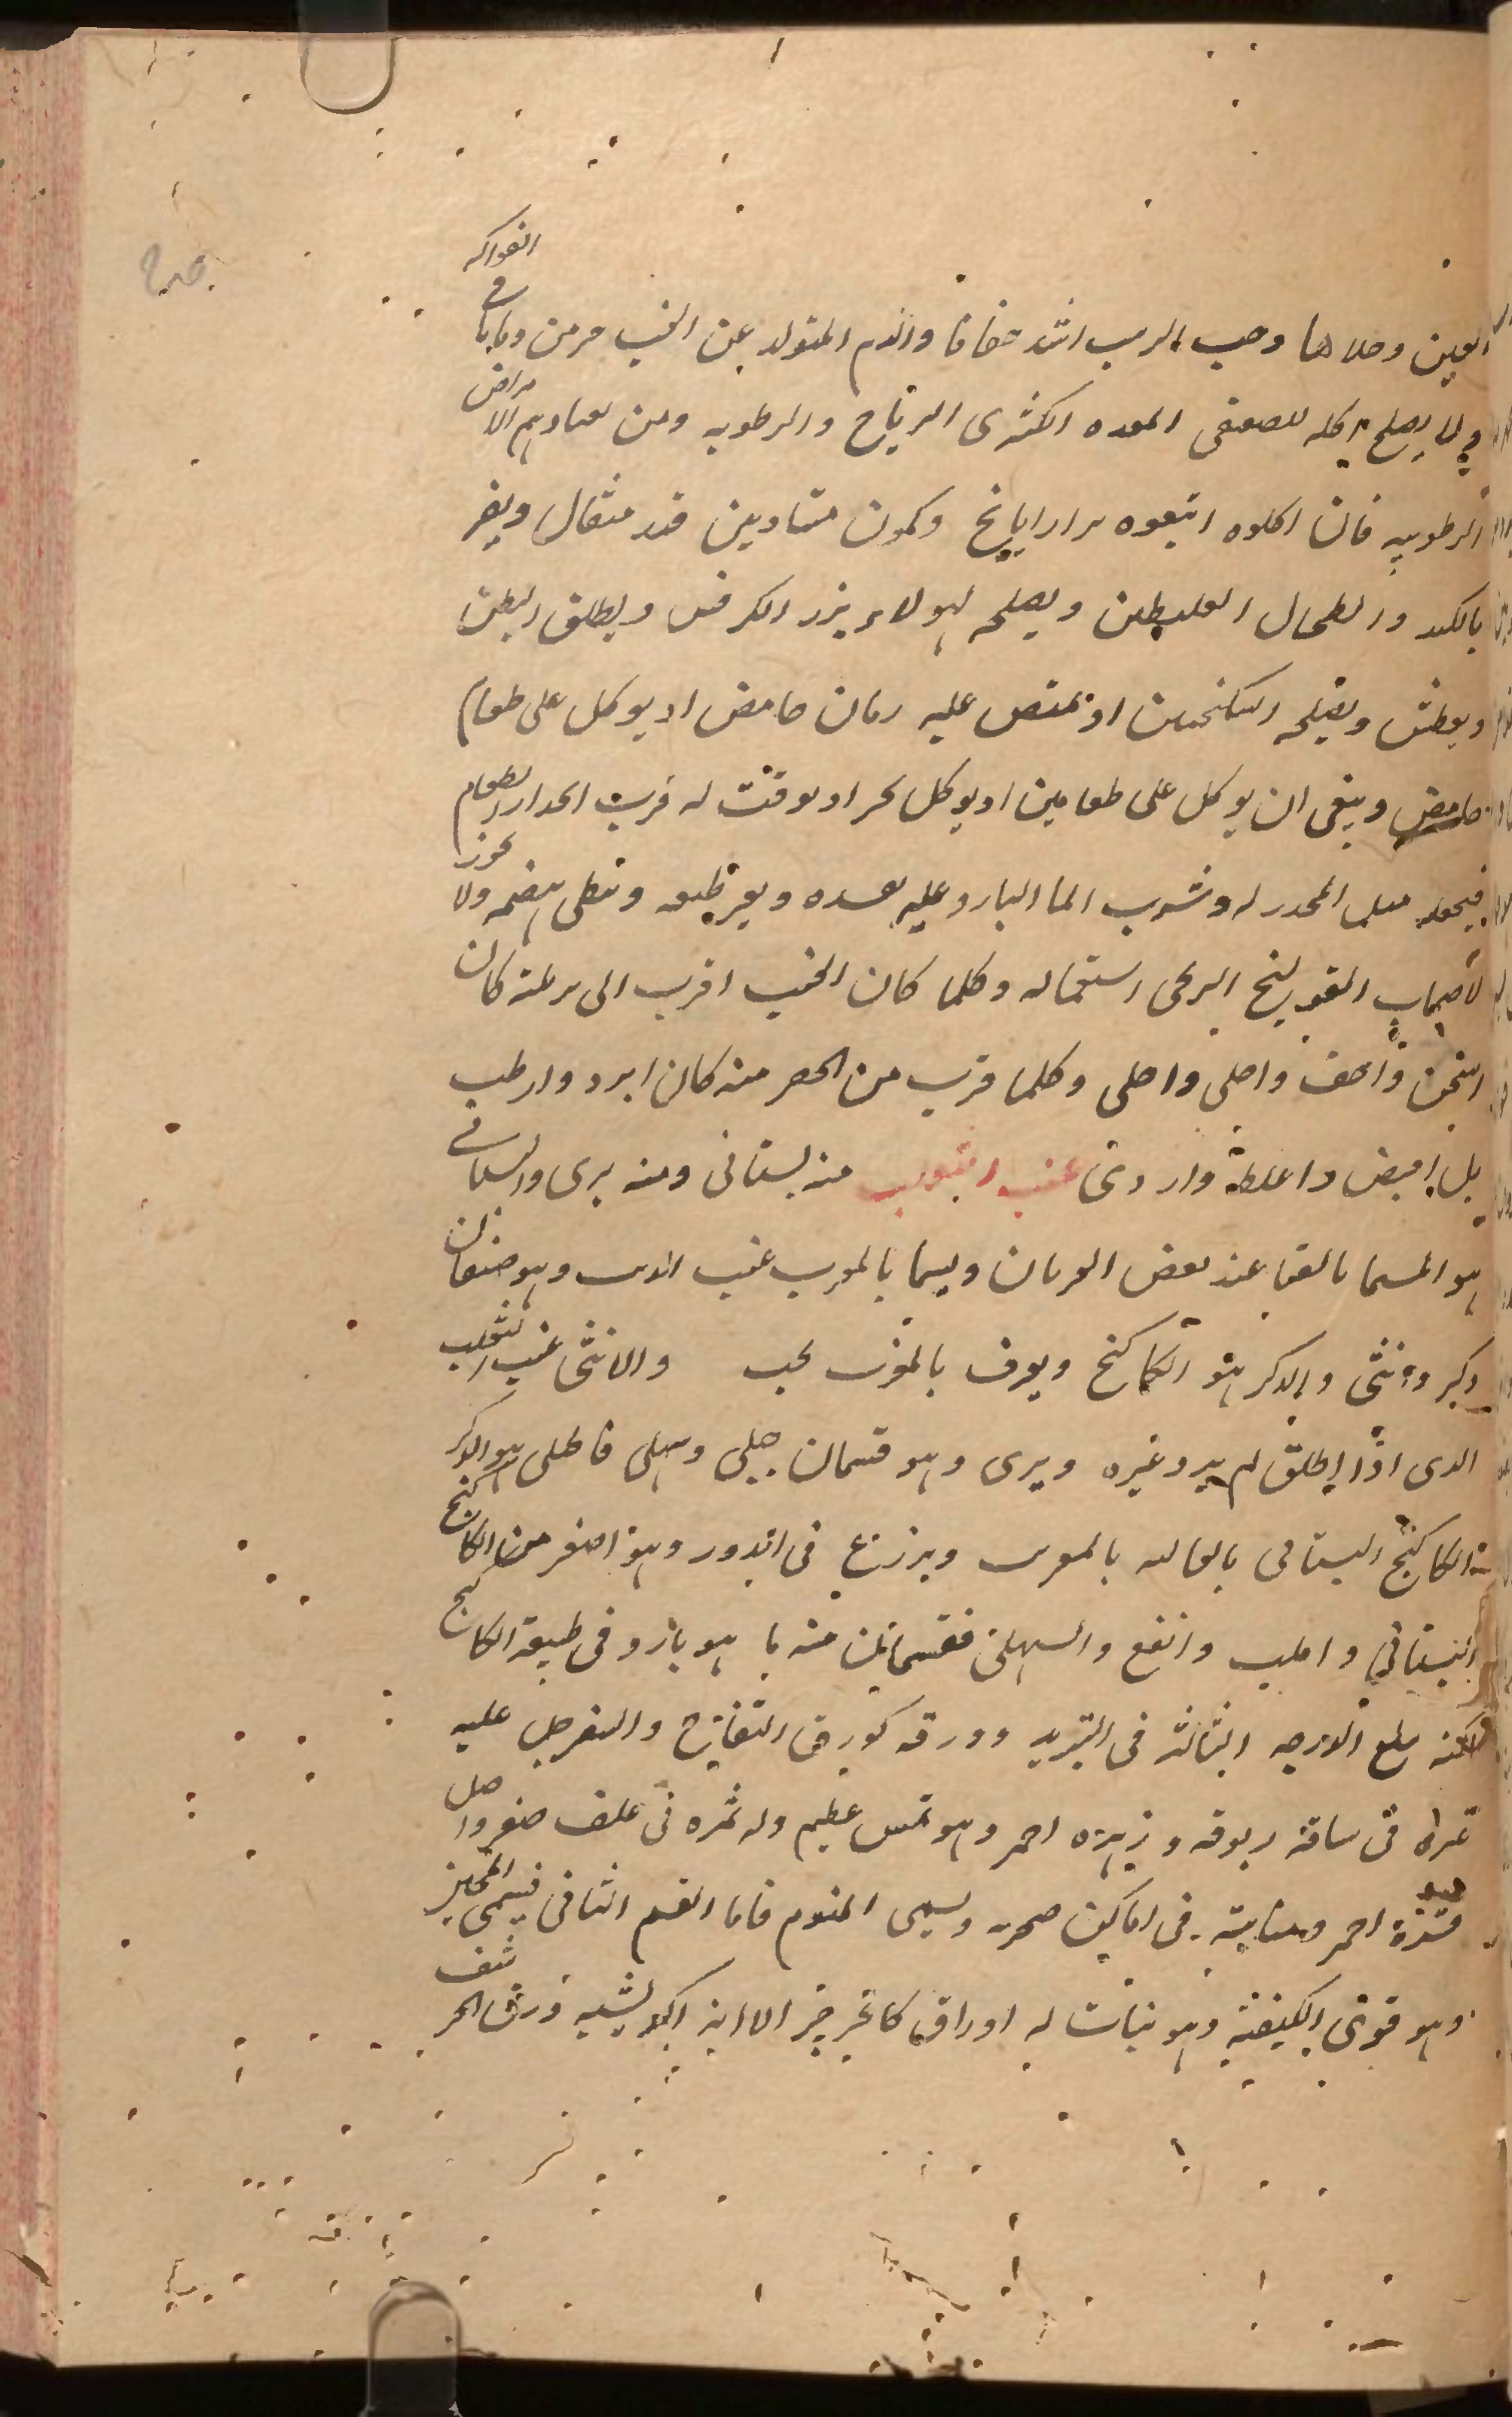 العين وحلاها وحب الربب اشد جفافا والدم المتولد عن العنب حرمن وباقا في الفواكه
ولا يصلح اكله لصعفى المعده الكثرى الرياح والرطوبه ومن لعاديهم الامراض
الرطوبيه فان اكلوه اتبعوه برازيانج وكمون متساويين قدر مثقال ويضر
بالكبد والطحال الغليظين ويصلحه لهولاء بزر الكرفس ويطلق البطن
ويعطش ويصلحه السكنجبين او يمتص عليه رمان حامض او يوكل على طعام
حامض وينبغى ان يوكل على طعامين او يوكل بحر او يوقت له قرب انحدار الطعام
فيجعله المحدر له وشرب الما البارد عليه يفسده ويغير طبعه وتبطى هضمه ولا يجوز
لاصحاب القولنج الريحى استعماله وكلما كان العنب اقرب الى كان
اسخن واخف واحلى وكلما قرب من الحصرمنه كان ابرد وارطب
بل اقبض واغلظ واردى عنب الثعلب منه بستانى ومنه برى والبستانى
هو المسما بالفنا عند بعض العربان ويسما بالمغرب عنب الذيب وهو صنفان
ذكر وانثى والذكر هو الكاكنج ويعرف بالمغرب بحب والانثى عنب الثعلب
الذى اذا اطلق لم يرد غيره وبرى وهو قسمان جبلى وسهلى فالجبلى هو الذكر
من الكاكنج البستانى بالمغرب ويزرع فى الدور وهو اصغر من الكاكنج
البستانى واطيب وانفع والسهلى فقسمان منه ما هو بارد فى طبيعة الكاكنج
لكنه يبلغ الدرجه الثالثه فى التبريد وورقه كورق التفاح والسفرجل عليه
غبرا فى ساقه ربوقه وزهره احمر وهو عظيم وله ثمره فى غلف صفر واصل
قشره احمر ومنابته فى اماكن صخريه ويسمى المنوم فاما القسم الثانى فيسمى المجنن
وهو قوى الكيفيه وهو نبات له اوراق كالجرجير الا انه اكبر يشبه ورق الحرشف